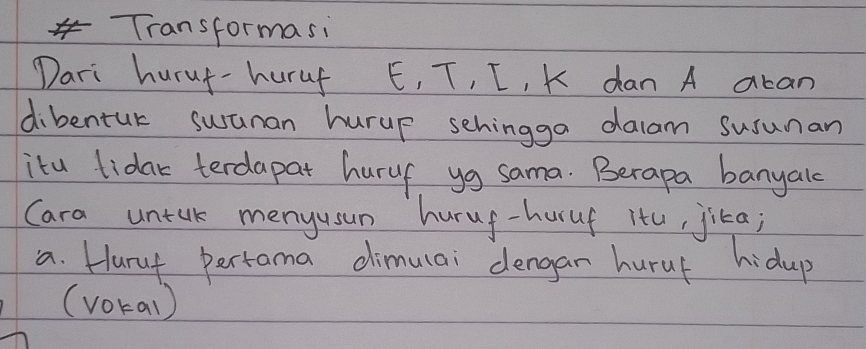 # Transformasi
Dari huruf-huruf E, T, I, K dan A akan
dibentuk susunan huruf sehingga dalam susunan
itu tidak terdapat huruf yg sama. Berapa banyak
Cara untuk menyusun huruf-huruf itu, jika;
a. Huruf pertama dimulai dengan huruf hidup
(vokal)